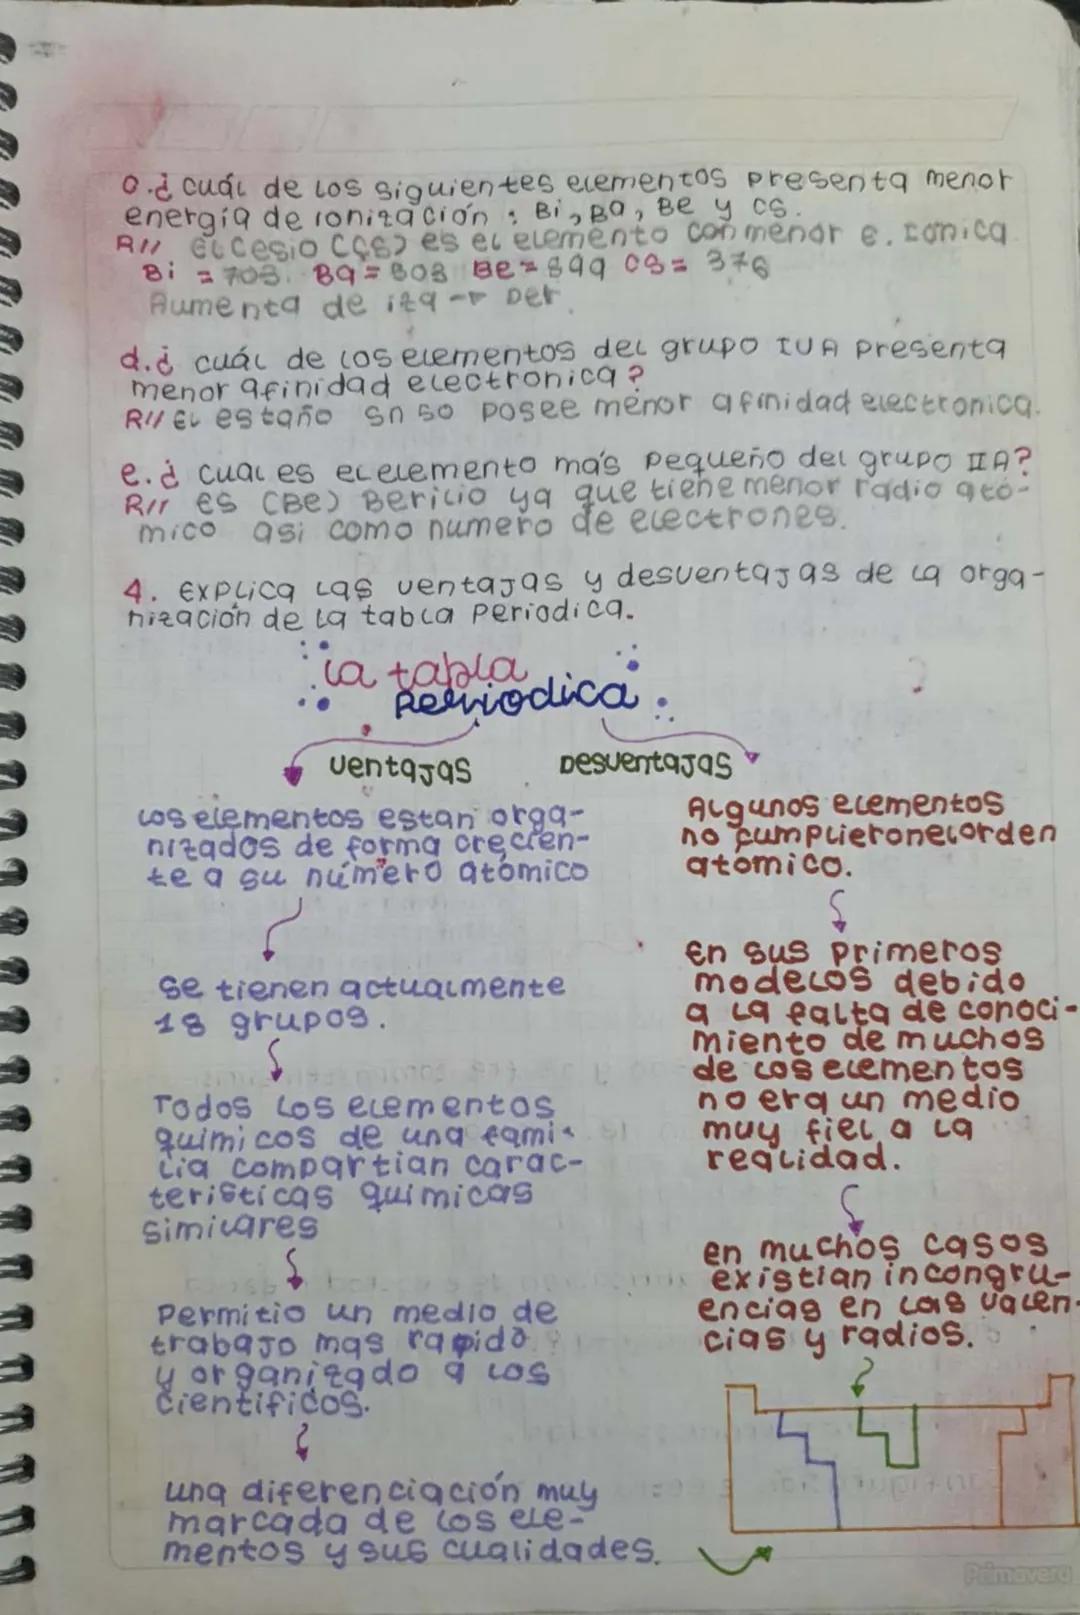 o.¿ cuál de los siguientes elementos presenta menor
energia de ionización : Bi, Ba, Be y cs.
R// El Cesio (Cs) es el elemento con menor e. ionica
Bi = 703. Ba = 503 Be = 899 cs = 376
Aumenta de izq → Der.
d.¿ cuál de los elementos del grupo IVA presenta
menor afinidad electronica?
R// El estaño Sn 50 posee menor afinidad electronica.
e.¿ cual es el elemento más pequeño del grupo IIA?
R// es (Be) Berilio ya que tiene menor radio ató-
mico asi como numero de electrones.
4. Explica las ventajas y desventajas de la orga-
nización de la tabla periodica.
la tabla
Periodica
ventajas
Desventajas
los elementos estan orga-
nizados de forma crecien-
te a su número atómico
se tienen actualmente
18 grupos.
Todos los elementos
quimicos de una fami-
lia compartian carac-
teristicas quimicas
similares
Permitio un medio de
trabajo mas rapido
y organizado a los
cientificos.
una diferenciación muy
marcada de los ele-
mentos y sus cualidades.
Algunos elementos
no cumplieron el orden
atomico.
En sus primeros
modelos debido
a la falta de conoci-
miento de muchos
de los elementos
no era un medio
muy fiel a la
realidad.
en muchos casos
existian incongru-
encias en las valen-
cias y radios.
Primavera